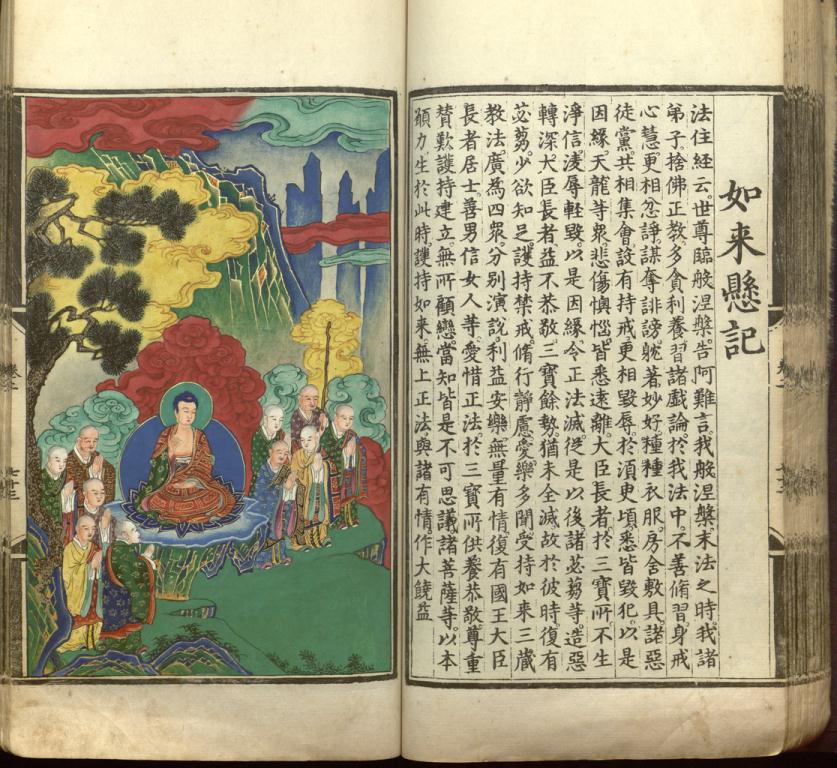 如来懸記
法住経云。世尊臨般涅槃。告阿難言。我般涅槃。末法之時。我諸
弟子。捨佛正教。多貪利養。習諸戲論。於我法中。不善脩習。身戒
心慧。更相忿諍。謀奪誹謗。躭著妙好。種種衣服。房舍敷具。諸惡
徒黨。共相集會。設有持戒。更相毀辱。於湏臾頃。悉皆毀犯。以是
因緣。天龍等衆。悲傷懊惱。皆悉逺離。大臣長者。於三寶所。不生
淨信。淩辱輕毀。以是因緣。令正法滅。從是以後。諸苾芻等。造惡
轉深。大臣長者。益不恭敬。三寶餘勢。猶未全滅。故於彼時。復有
苾芻。少欲知足。護持禁戒。脩行靜慮。愛樂多聞。受持如来三藏
教法。廣為四衆。分别演說。利益安樂。無量有情。復有國王大臣
長者居士。善男信女人等。愛惜正法。於三寶所。供養恭敬。尊重
賛歎。護持建立。無所顧戀。當知皆是不可思議。諸菩薩等。以本
願力。生於此時。護持如来。無上正法。與諸有情。作大饒益
卷二
七十三